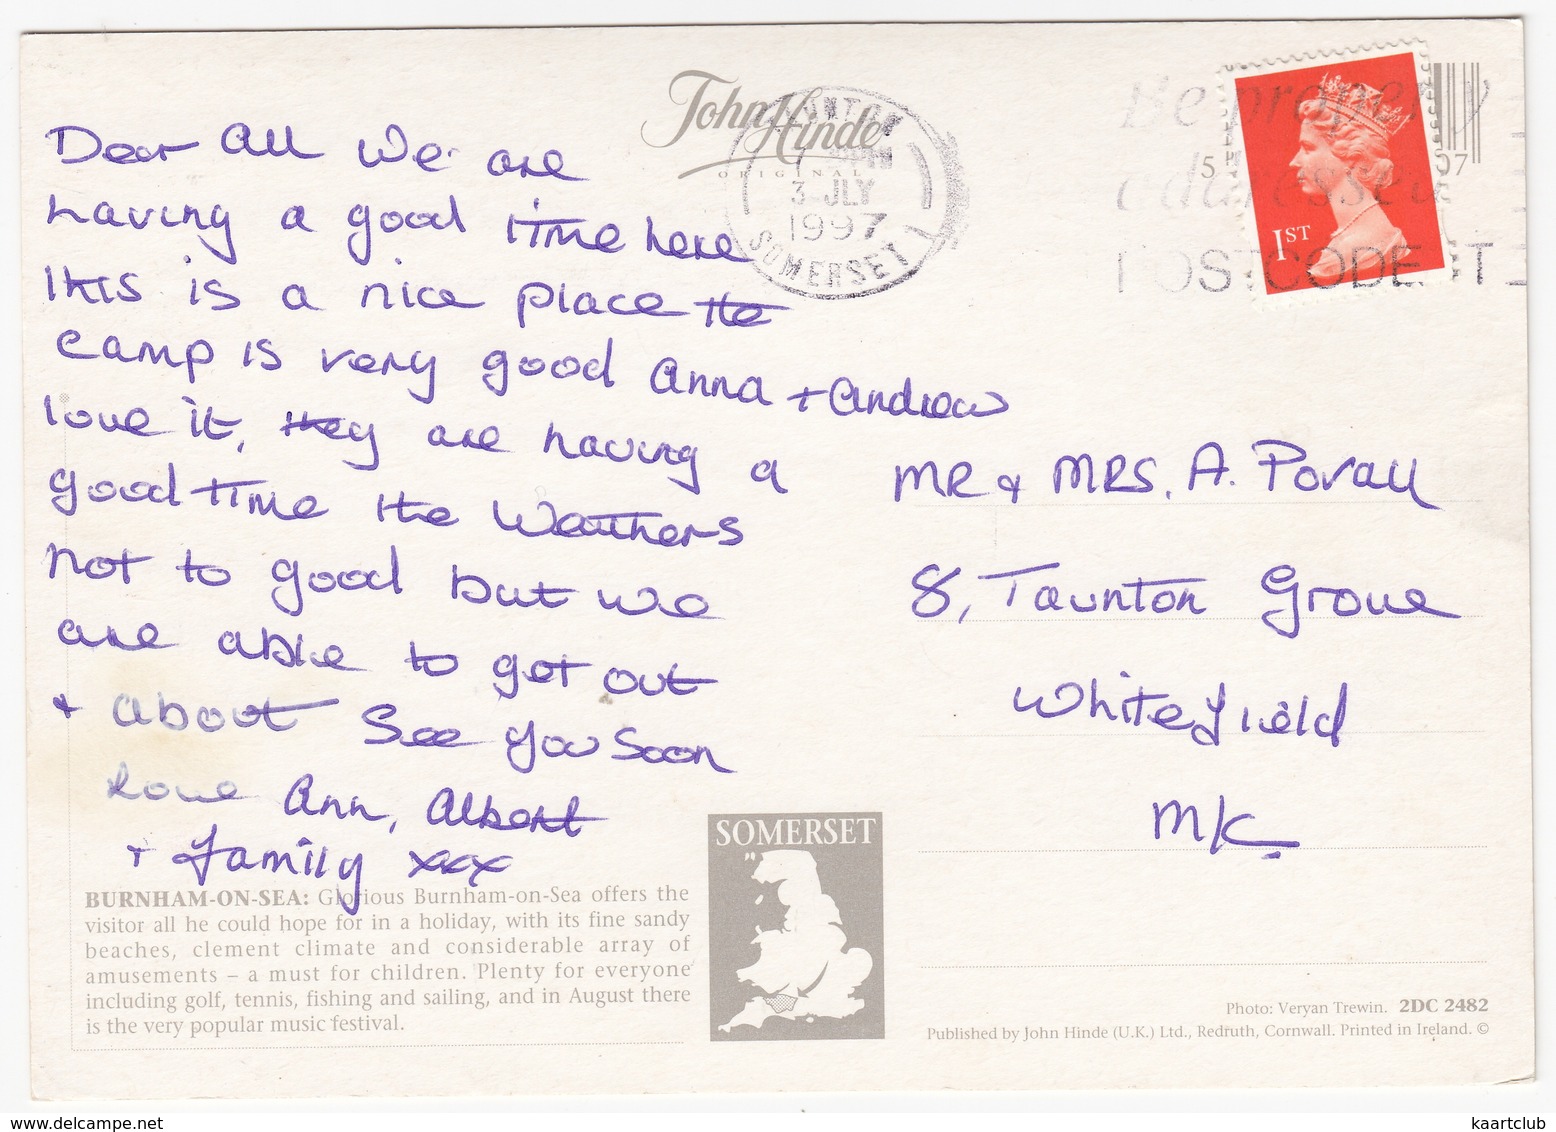 John Hinde
ORIGINAL
TAUNTON
3 JLY
1997
SOMERSET
Be properly
addressed
POSTCODE IT
1ST
5
07
Dear All We are
having a good time here
this is a nice place the
camp is very good Anna + Andrew
love it, they are having a
good time the Weathers
not to good but we
are able to get out
+ about See you Soon
Love Ann, Albert
+ family xxx
MR & MRS. A. Povall
8, Taunton Grove
Whitefield
M/C
SOMERSET
BURNHAM-ON-SEA: Glorious Burnham-on-Sea offers the
visitor all he could hope for in a holiday, with its fine sandy
beaches, clement climate and considerable array of
amusements – a must for children. Plenty for everyone
including golf, tennis, fishing and sailing, and in August there
is the very popular music festival.
Photo: Veryan Trewin. 2DC 2482
Published by John Hinde (U.K.) Ltd., Redruth, Cornwall. Printed in Ireland. ©
www.delcampe.net
kaartclub